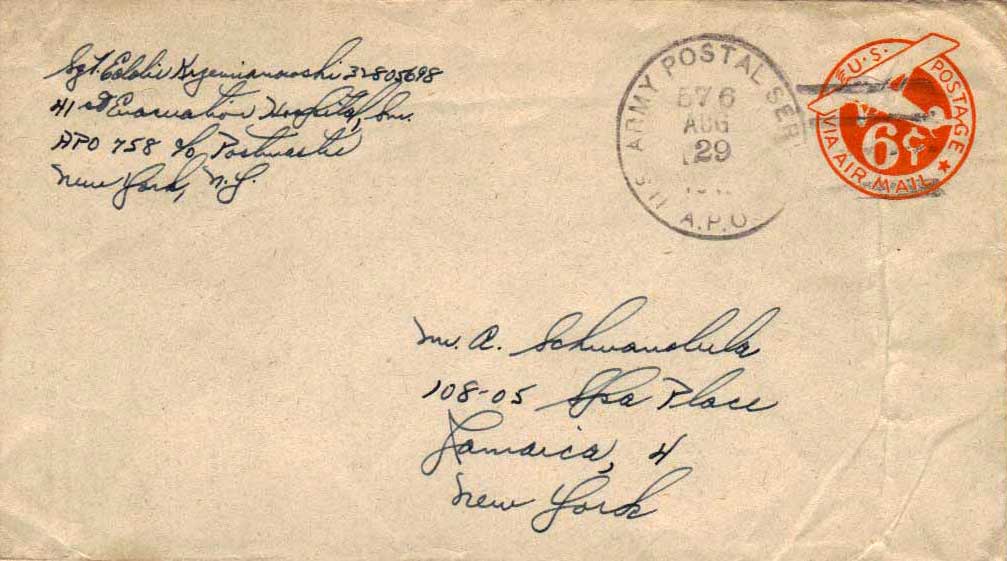 Sgt. Eddie Krzemianowski 32805698
41st Evacuation Hospital, Sm.
APO 758 c/o Postmaster
New York, N.Y.
U.S. ARMY POSTAL SER
576
AUG
29
A.P.O.
U.S. POSTAGE
6¢
VIA AIR MAIL
M. A. Schwandula
108-05 Spa Place
Jamaica, 4
New York